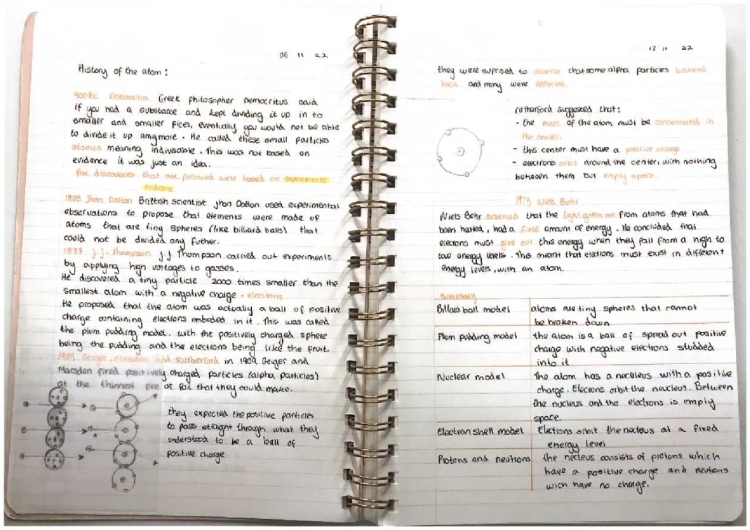 06 11 22
History of the atom:
400BC Democritus Greek philosopher Democritus said
if you had a substance and kept dividing it up in to
smaller and smaller pices, eventually you would not be able
to divide it up anymore. He called these small particles
atomos meaning indivisable. This was not based on
evidence it was just an idea.
The discoveries that followed were based on experimental
evidence
1803 Jhon Dalton British scientist jhon Dalton used experimental
observations to propose that elements were made of
atoms that are tiny spheres (like billiard balls) that
could not be divided any futher.
J.J. Thompson J.J Thompson carried out experiments
by applying high voltages to gasses.
He discovered a tiny particle 2000 times smaller than the
smallest atom with a negative charge - electrons
He proposed that the atom was actually a ball of positive
charge containing electrons embeded in it. This was called
the plum pudding model. with the positively charged sphere
being the pudding and the electrons being like the fruit.
1909 Geiger, Marsden and Rutherford in 1909 Geiger and
Marsden fired positively charged particles (alpha particles)
at the thinnest pice of foil that they could make.
they expected the positive particles
to pass straight through what they
understood to be a ball of
positive charge
13 11 22
they were suprised to observe that some alpha particles bounced
back and many were deflected.
rutherford suggested that:
- the mass of the atom must be concentrated in
the center.
- this center must have a positive charge
- electrons orbit around the center, with nothing
between them but empty space.
1913 Niels Bohr
Niels Bohr observed that the light given out from atoms that had
been heated, had a fixed amount of energy. He concluded that
elecrons must give out this energy when they fall from a high to
low energy levels. This meant that elecrons must exist in different
energy levels, with an atom.
Summary
Billiard ball model atoms are tiny spheres that cannot
be broken down
Plum pudding model the atom is a ball of spread out positive
charge with negative electrons studded
into it
Nuclear model The atom has a necleus with a positive
charge. Elecrons orbit the nucleus. Between
the nucleus and the electrons is empty
space.
Electron shell model Elctrons orbit the necleus at a fixed
energy level
Protons and neutrons the nucleus consists of protons which
have a positive charge and neutrons
wich have no charge.